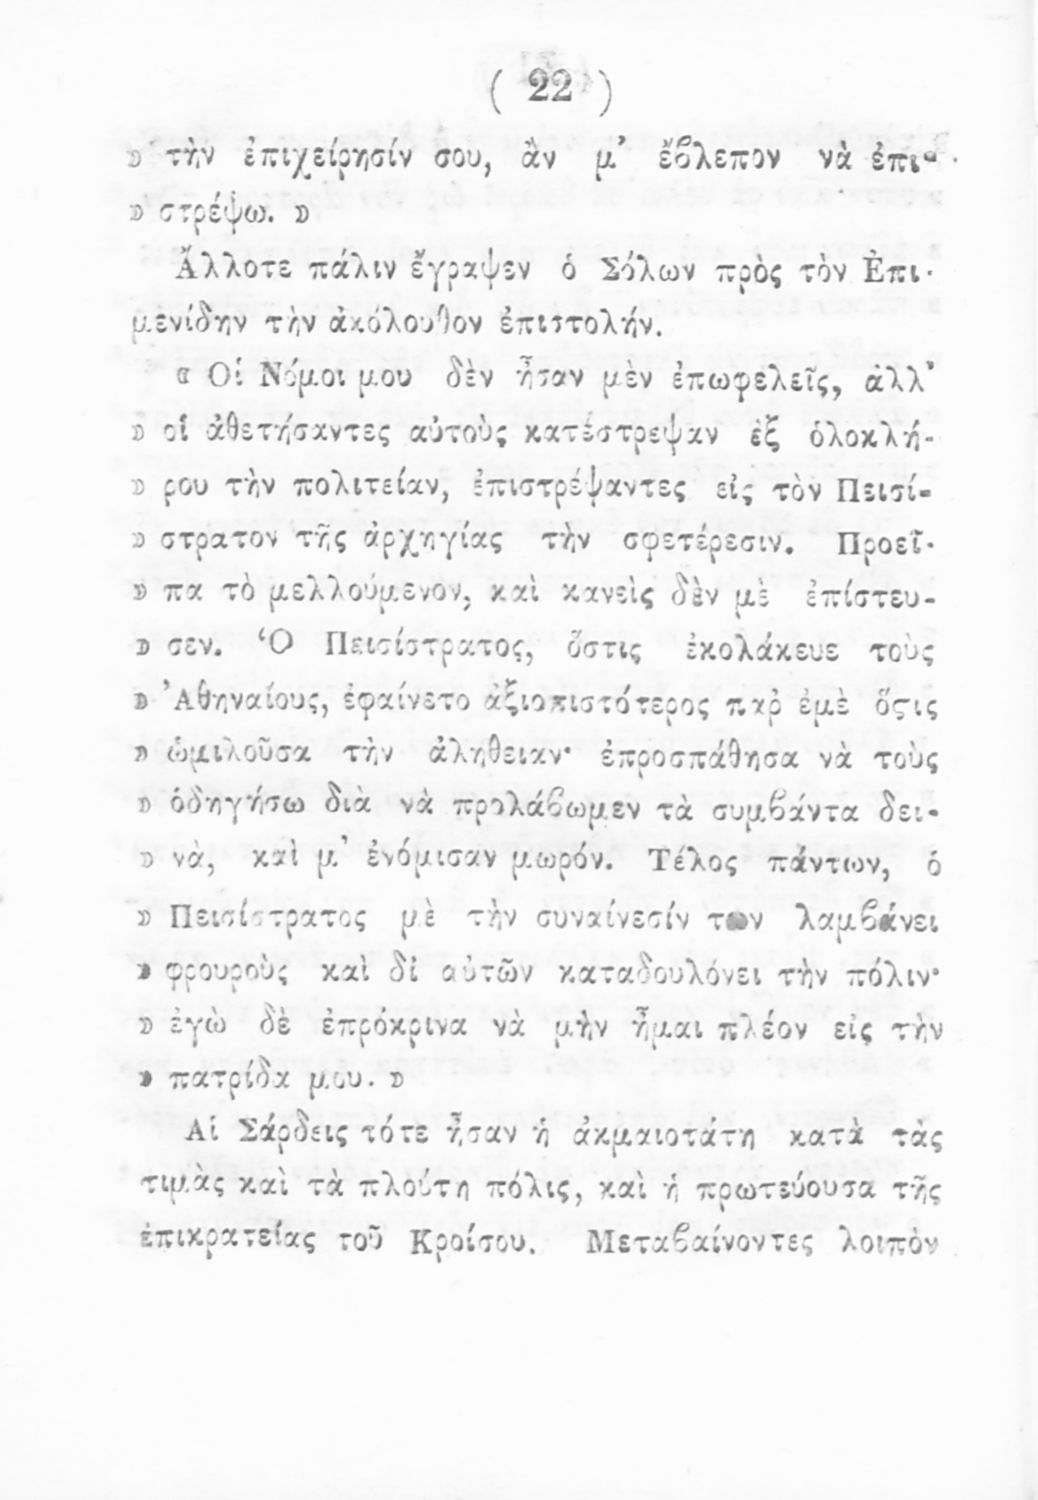 ( 22 )
» τὴν ἐπιχείρησίν σου, ἂν μ’ ἔϐλεπον νὰ ἐπι-
» στρέψω. »
Ἄλλοτε πάλιν ἔγραψεν ὁ Σόλων πρὸς τὸν Ἐπι-
μενίδην τὴν ἀκόλουθον ἐπιστολήν.
« Οἱ Νόμοι μου δὲν ἦσαν μὲν ἐπωφελεῖς, ἀλλ’
» οἱ ἀθετήσαντες αὐτοὺς κατέστρεψαν ἐξ ὁλοκλή-
» ρου τὴν πολιτείαν, ἐπιστρέψαντες εἰς τὸν Πεισί-
» στρατον τῆς ἀρχηγίας τὴν σφετέρεσιν. Προεῖ-
» πα τὸ μελλούμενον, καὶ κανεὶς δὲν μὲ ἐπίστευ-
» σεν. Ὁ Πεισίστρατος, ὅστις ἐκολάκευε τοὺς
» Ἀθηναίους, ἐφαίνετο ἀξιοπιστότερος παρ ἐμὲ ὅςις
» ὡμιλοῦσα τὴν ἀλήθειαν· ἐπροσπάθησα νὰ τοὺς
» ὁδηγήσω διὰ νὰ προλάϐωμεν τὰ συμϐάντα δει-
» νὰ, καὶ μ’ ἐνόμισαν μωρόν. Τέλος πάντων, ὁ
» Πεισίστρατος μὲ τὴν συναίνεσίν των λαμϐάνει
» φρουροὺς καὶ δἰ αὐτῶν καταδουλόνει τὴν πόλιν·
» ἐγὼ δὲ ἐπρόκρινα νὰ μὴν ἦμαι πλέον εἰς τὴν
» πατρίδα μου. »
Αἱ Σάρδεις τότε ἦσαν ἡ ἀκμαιοτάτη κατὰ τὰς
τιμὰς καὶ τὰ πλούτη πόλις, καὶ ἡ πρωτεύουσα τῆς
ἐπικρατείας τοῦ Κροίσου. Μεταϐαίνοντες λοιπὸν